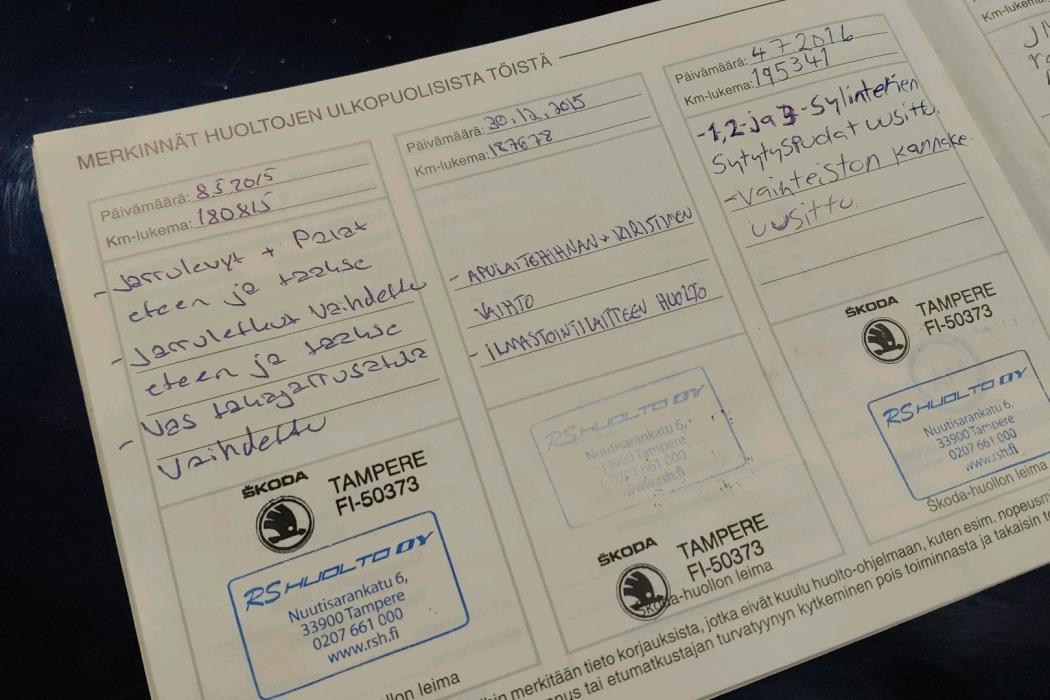 MERKINNÄT HUOLTOJEN ULKOPUOLISISTA TÖISTÄ
Päivämäärä: 8.5 2015
Km-lukema: 180815
- Jarrulevyt + Palat
eteen ja taakse
- Jarruletkut vaihdettu
eteen ja taakse
- Vas takajarrusatula
Vaihdettu
ŠKODA
TAMPERE
FI-50373
RS HUOLTO OY
Nuutisarankatu 6,
33900 Tampere
0207 661 000
www.rsh.fi
llon leima
Päivämäärä: 30.12.2015
Km-lukema: 187678
- APULAITEHIHNAN + KIRISTIMEN
VAIHTO
- ILMASTOINTILAITTEEN HUOLTO
RS HUOLTO OY
Nuutisarankatu 6,
33900 Tampere
0207 661 000
www.rsh.fi
ŠKODA
TAMPERE
FI-50373
Škoda-huollon leima
Päivämäärä: 4 7 2016
Km-lukema: 195341
-1,2- ja 3-Sylinterien
Sytytyspuolat uusittu.
- Vaihteiston kannake
uusittu.
ŠKODA
TAMPERE
FI-50373
RS HUOLTO OY
Nuutisarankatu 6,
33900 Tampere
0207 661 000
www.rsh.fi
Škoda-huollon leima
merkitään tieto korjauksista, jotka eivät kuulu huolto-ohjelmaan, kuten esim. nopeusm
nus tai etumatkustajan turvatyynyn kytkeminen pois toiminnasta ja takaisin to
Km-lukema: